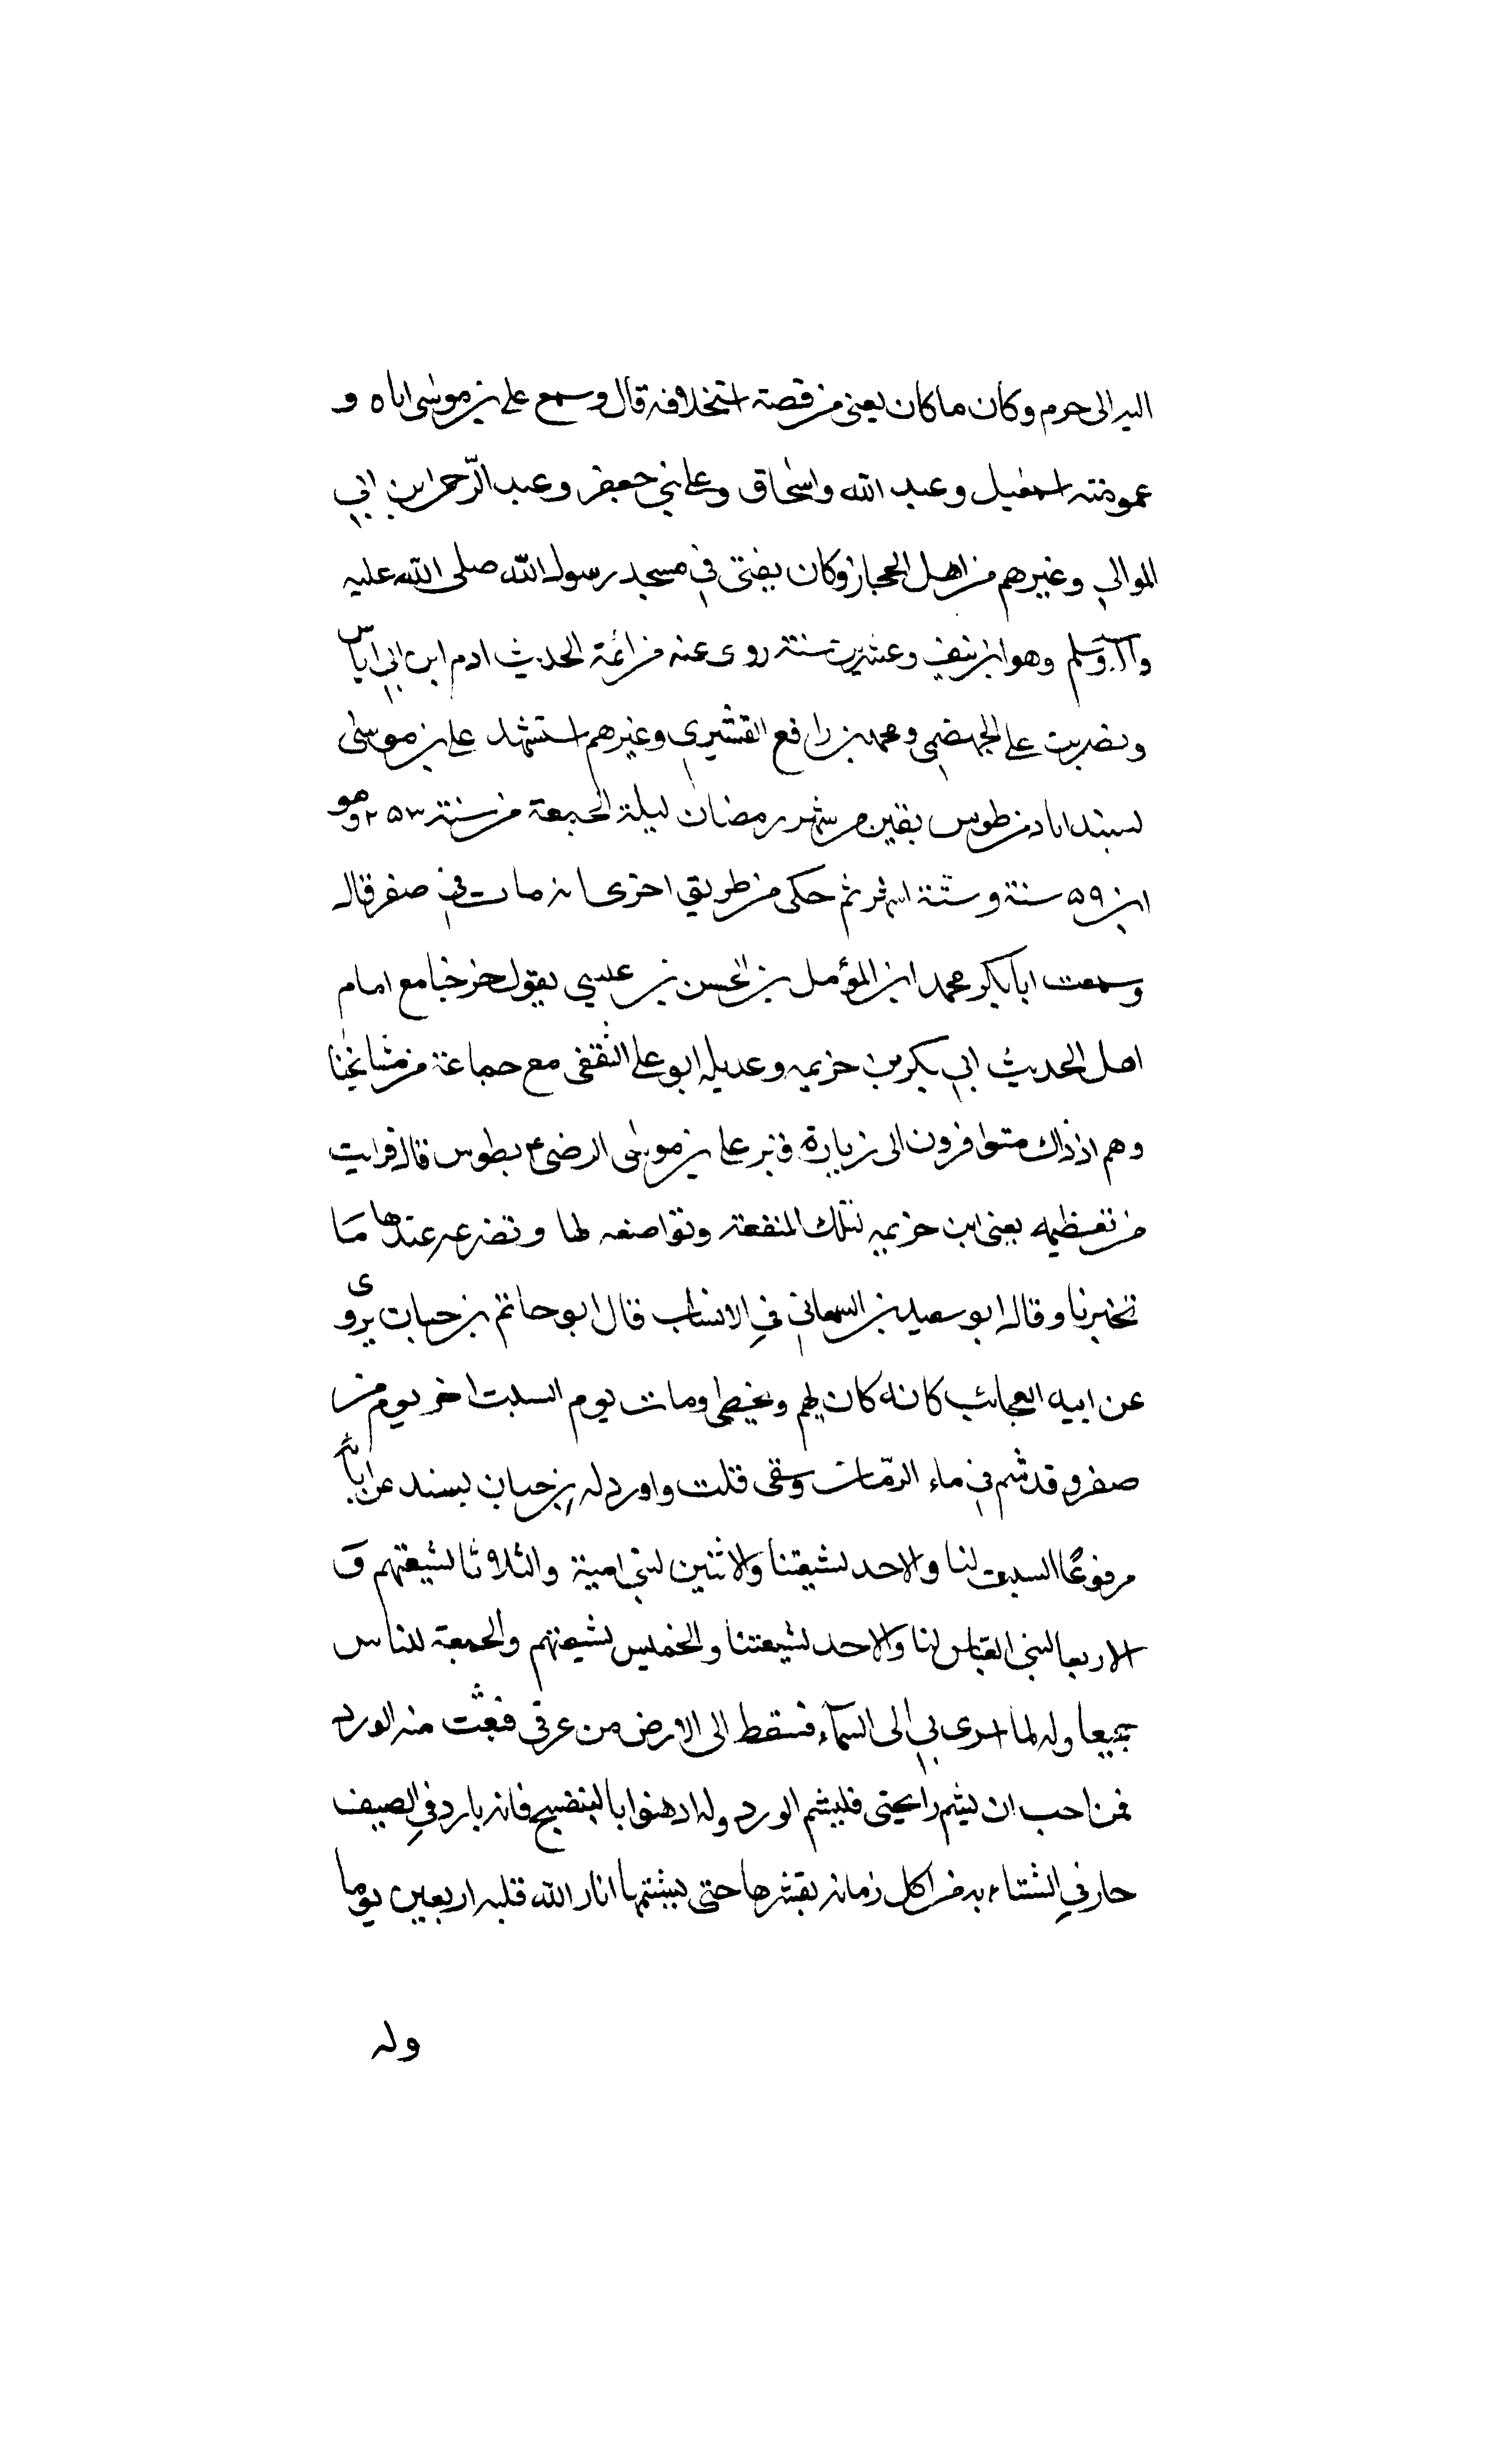 اليه الى حرم وكان ما كان يعنى من قصة استخلافه قال وسمع على بن موسى اباه و
عمومته اسمعيل وعبد الله واسحاق وعلى بنى جعفر وعبد الرحمن ابن ابى
الموالى وغيرهم من اهل الحجاز وكان يفتى فى مسجد رسول الله صلى الله عليه
وآله وسلم وهو ابن نيف وعشرين سنة روى عنه من ائمة الحديث ادم ابن ابى اياس
ونصر بن على الجهضمى ومحمد بن رافع القشيرى وغيرهم استشهد على بن موسى
لسند اباد من طوس بقين من شهر رمضان ليلة الجمعة من سنة ٢٥٣ وهو
ابن ٥٩ سنة وستة اشهر ثم حكى من طريق اخرى انه مات فى صفر قال
وسمعت ابا بكر محمد ابن المؤمل بن الحسن بن عيسى يقول خرجنا مع امام
اهل الحديث ابى بكر بن خزيمه وعديله ابو على الثقفى مع جماعة من مشايخنا
وهم اذ ذاك متوافرون الى زيارة قبر على بن موسى الرضى ع بطوس قال فرايت
من تعظيمه يعنى ابن خزيمه لتلك المنفعة وتواضعه لها وتضرعه عندها مَا
تحيرنا وقال ابو سعيد بن السمعانى فى الانساب قال ابو حاتم بن حبان يروى
عن ابيه العجائب كانه كان يهم ويخطى ومات يوم السبت اخر يوم من
صفر وقد شم فى ماء الرمّان وسقى قلت واورد له بن حبان بسند عن ابائه
مرفوعًا السبت لنا والاحد لشيعتنا والاثنين لبنى امية والثلاثا لشيعتهم وَ
الاربعا لبنى العباس لنا والاحد لشيعتنا والخميس لشيعتهم والجمعة للناس
جميعا وله لما اسرى بى الى السمآء فسقط الى الارض من عرقى فنبت منه الورد
فمن احب ان يشم رايحتى فليشم الورد وله ادهنوا بالبنفسج فانه بارد فى الصيف
حار فى الشتاء وله من اكل رمانه بقشرها حتى يستتمها انار الله قلبه اربعين يوما
وله